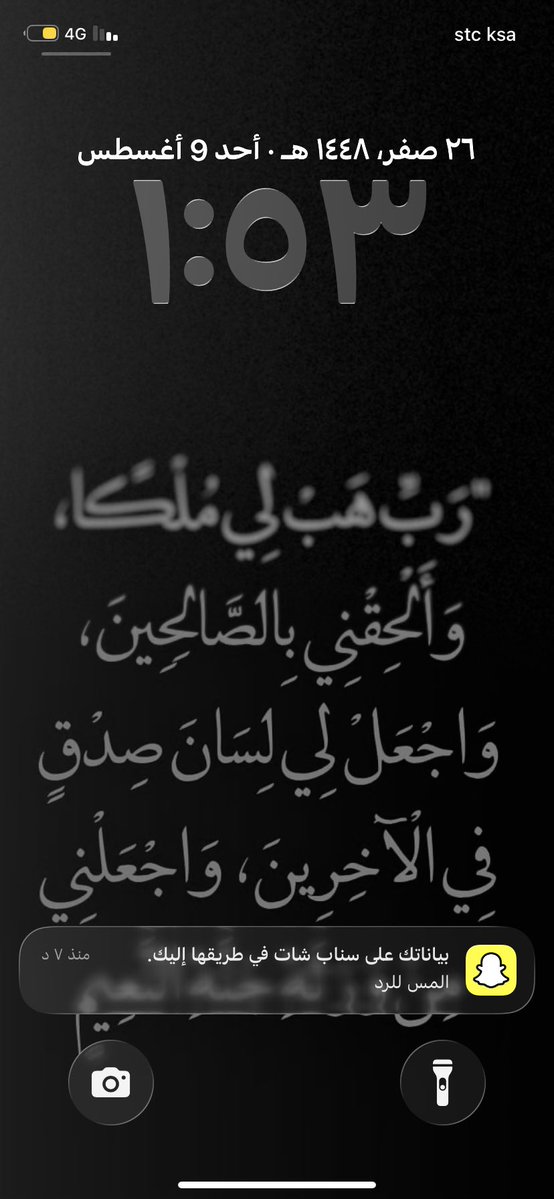 4G
stc ksa
٢٦ صفر، ١٤٤٨ هـ · أحد 9 أغسطس
١:٥٣
"رَبِّ هَبْ لِي مُلْكًا،
وَأَلْحِقْنِي بِالصَّالِحِينَ،
وَاجْعَلْ لِي لِسَانَ صِدْقٍ
فِي الْآخِرِينَ، وَاجْعَلْنِي
بياناتك على سناب شات في طريقها إليك.
منذ ٧ د
المس للرد